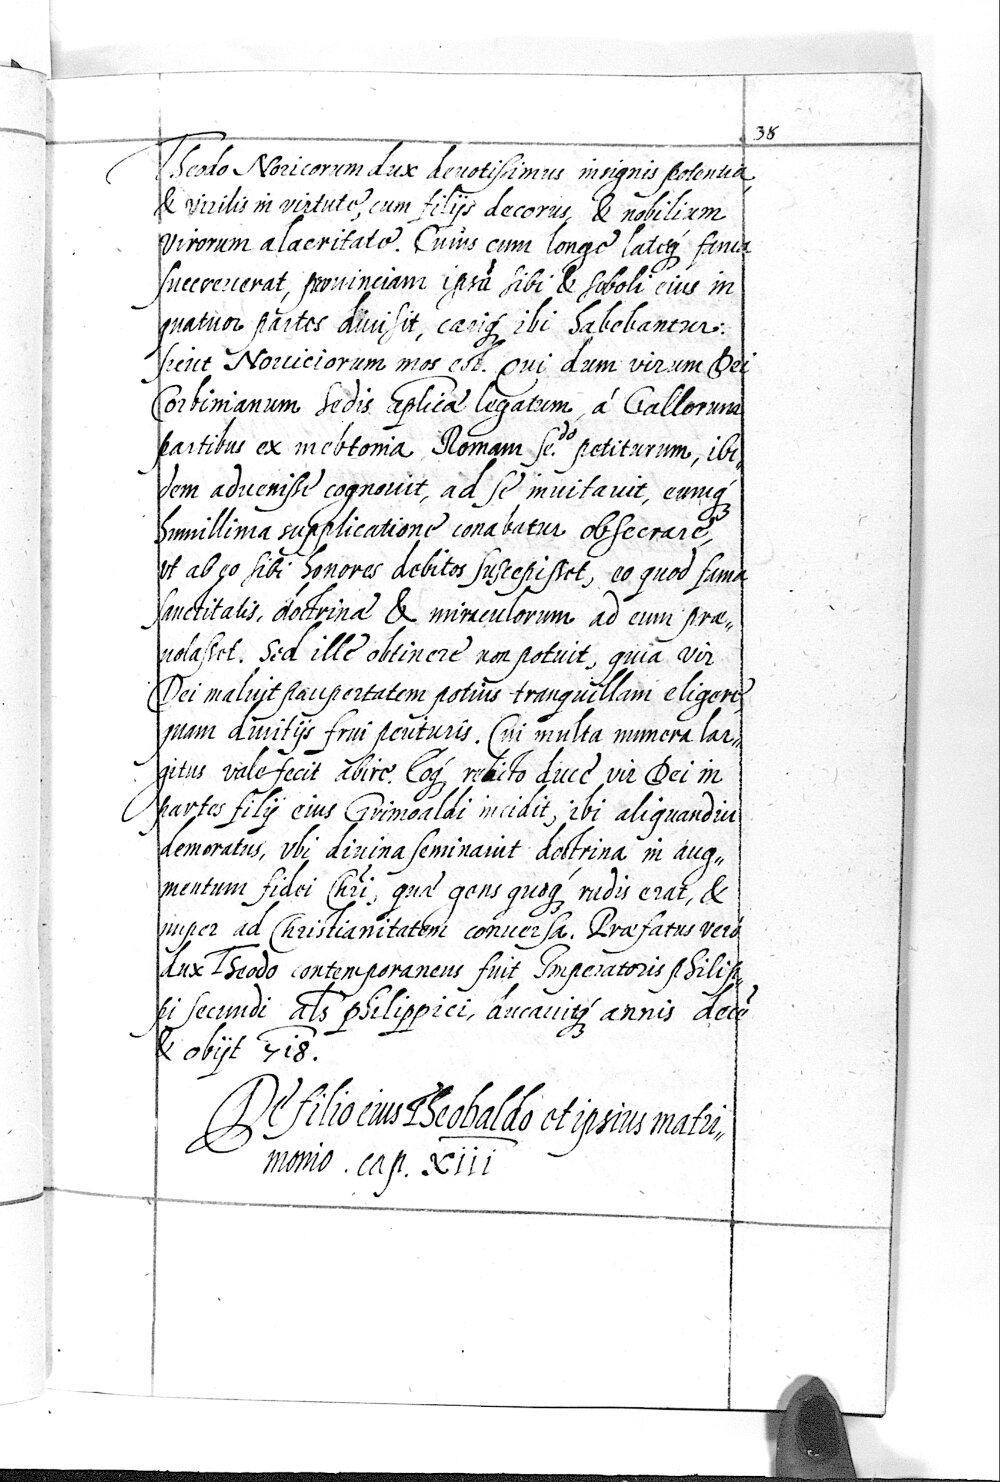 38
Theodo Noricorum dux deuotissimus insignis potentia,
& virilis in virtute, cum filijs decorus, & nobilium
virorum alacritate. Cuius cum longe lateq́ fama
succreuerat, prouinciam ipsā sibi & soboli eius in
quatuor partes diuisit, eaeq́ ibi habebantur.
sicut Noriciorum mos est. Qui dum virum Dei
Corbinianum sedis aplicæ legatum, á Gallorum
partibus ex mebtonia Romam se.do petiturum, ibi„
dem aduenisse cognouit, ad se inuitauit, eumq́
humillima supplicatione conabatur obsecrare,
vt ab eo sibi honores debitos suscepisset, eo quod fama
sanctitatis, doctrinæ & miraculorum ad eum præ„
uolasset. Sed ille obtinere non potuit, quia vir
Dei maluit paupertatem potius tranquillam eligere,
quam diuitijs frui perituris. Cui multa munera lar„
gitus valefecit abire. Eoq́ relicto duce vir Dei in
partes filij eius Grimoaldi incidit, ibi aliquandiu
demoratus, vbi diuina seminauit doctrina in aug„
mentum fidei Chri, quæ gens quoq́ rudis erat, &
nuper ad Christianitatem conuersa. Præfatus vero
dux Theodo contemporaneus fuit Imperatoris philip„
pi secundi als philippici, ducauitq́ annis decē
& obijt 718.
De filio eius Theobaldo et ipsius matri„
monio. cap. XIII